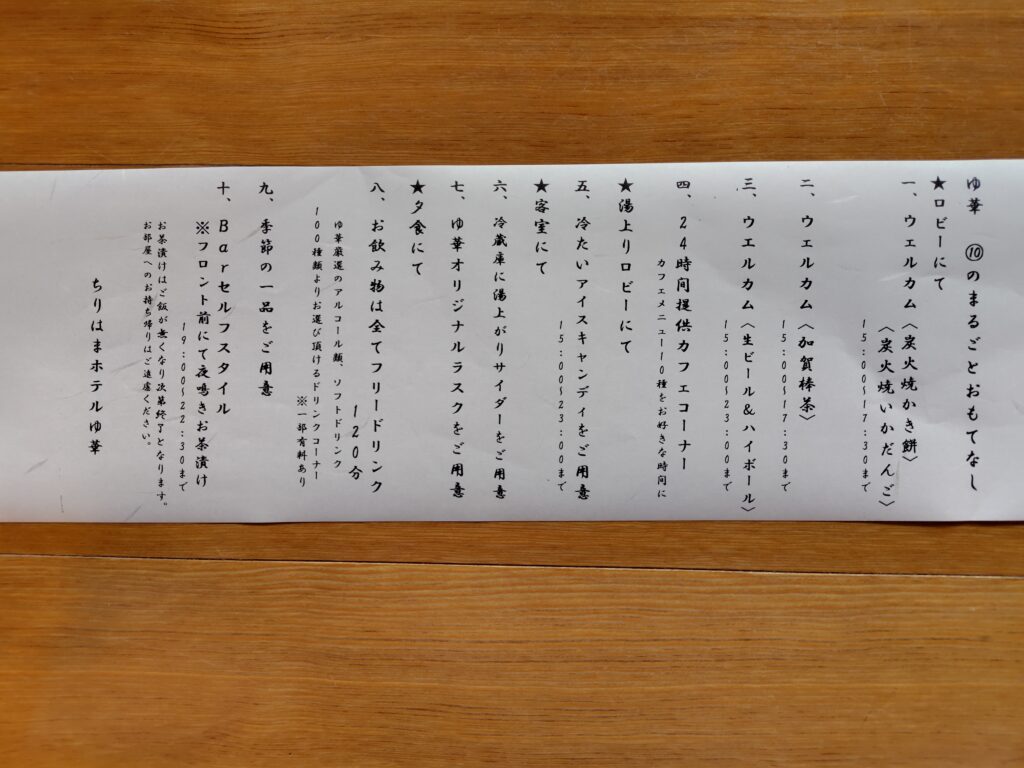 ゆ華　⑩のまるごとおもてなし
★ロビーにて
一、ウェルカム〈炭火焼かき餅〉
〈炭火焼いかだんご〉
15:00~17:30まで
二、ウェルカム〈加賀棒茶〉
15:00~17:30まで
三、ウエルカム〈生ビール&ハイボール〉
15:00~23:00まで
四、24時間提供カフェコーナー
カフェメニュー10種をお好きな時間に
★湯上りロビーにて
五、冷たいアイスキャンディをご用意
15:00~23:00まで
★客室にて
六、冷蔵庫に湯上がりサイダーをご用意
七、ゆ華オリジナルラスクをご用意
★夕食にて
八、お飲み物は全てフリードリンク
120分
ゆ華厳選のアルコール類、ソフトドリンク
100種類よりお選び頂けるドリンクコーナー
※一部有料あり
九、季節の一品をご用意
十、Barセルフスタイル
※フロント前にて夜鳴きお茶漬け
19:00~22:30まで
お茶漬けはご飯が無くなり次第終了となります。
お部屋へのお持ち帰りはご遠慮ください。
ちりはまホテルゆ華